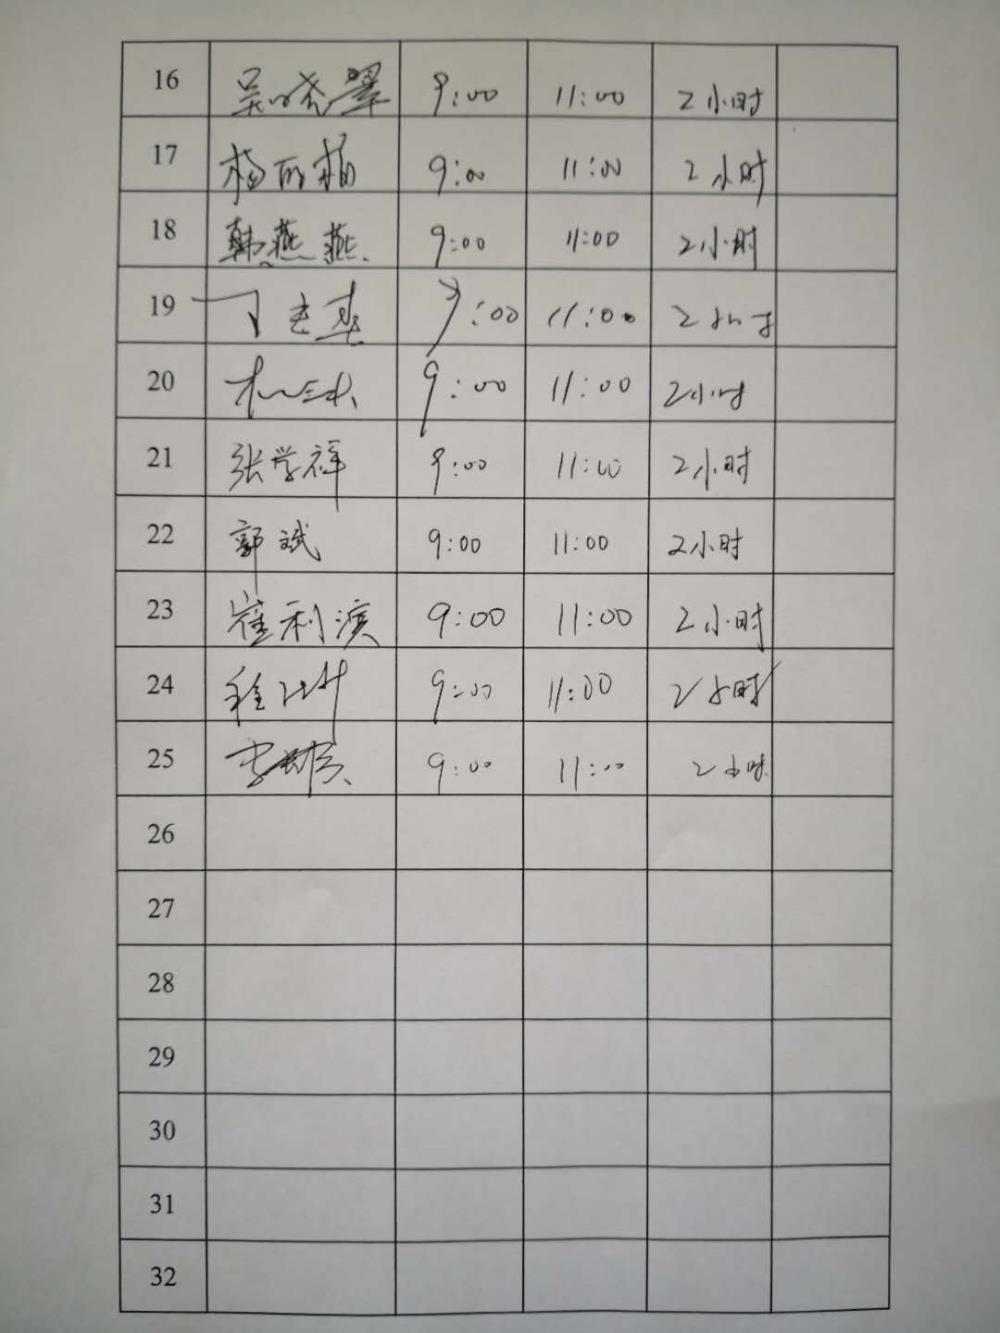 16 吴晓翠 9:00 11:00 2小时
17 杨丽梅 9:00 11:00 2小时
18 韩燕燕 9:00 11:00 2小时
19 9:00 11:00 2小时
20 9:00 11:00 2小时
21 张学祥 9:00 11:00 2小时
22 郭斌 9:00 11:00 2小时
23 崔利滨 9:00 11:00 2小时
24 9:00 11:00 2小时
25 9:00 11:00 2小时
26
27
28
29
30
31
32